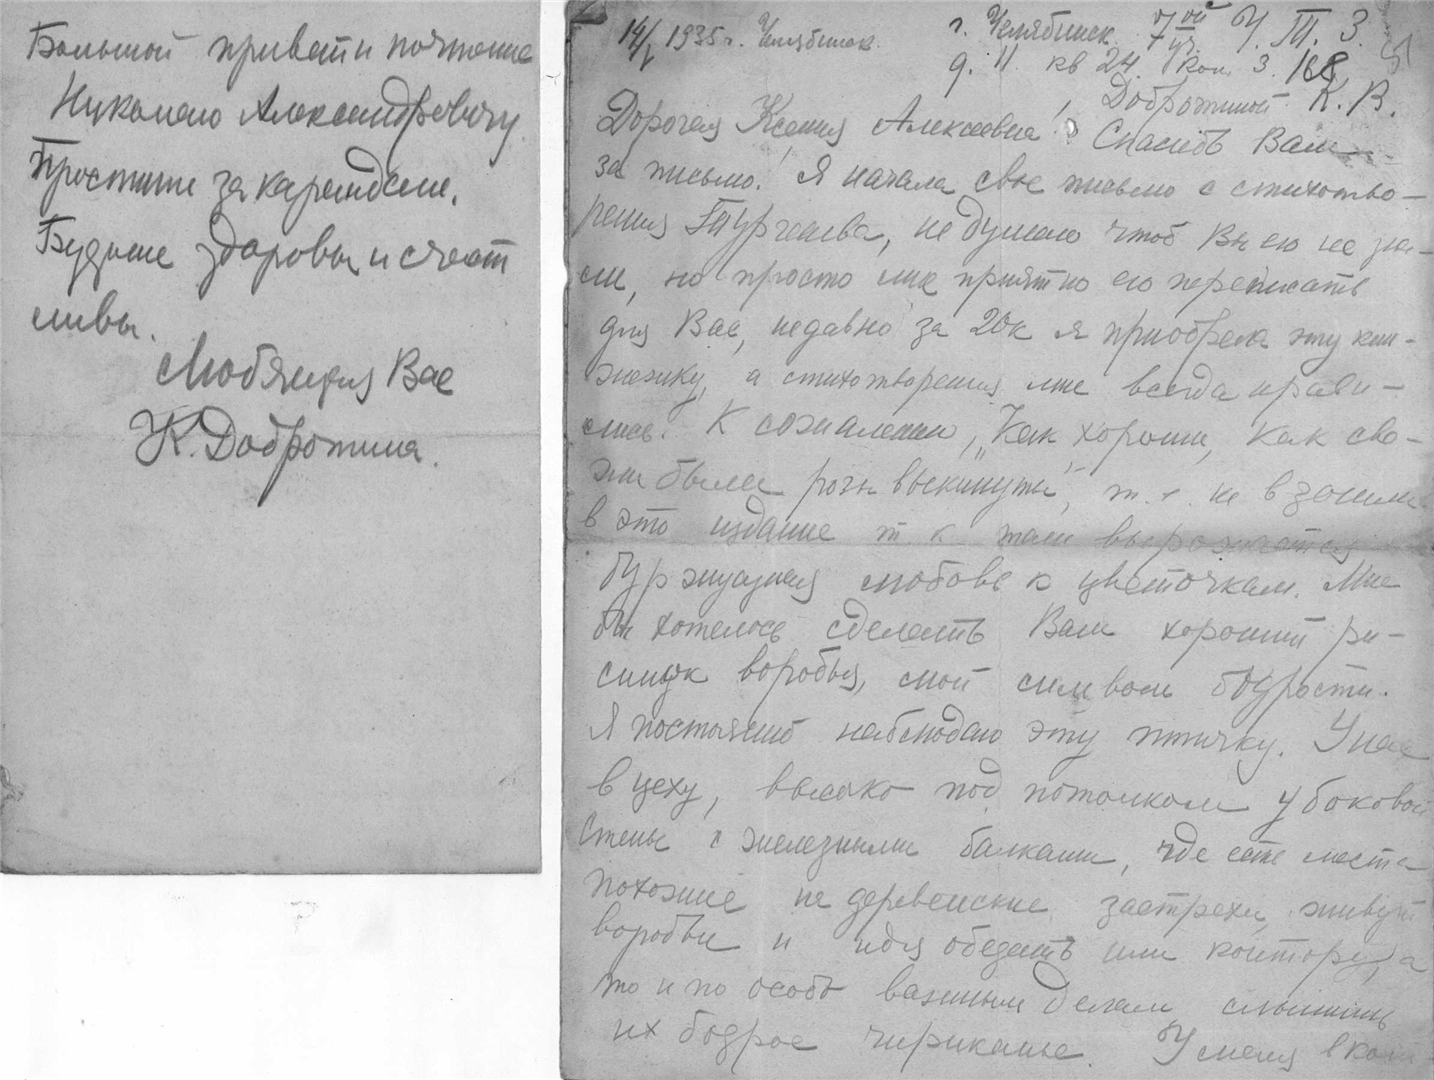 Большой привет и почтение
Николаю Александровичу.
Простите за карандаш.
Будьте здоровы и счаст
ливы.
Любящая Вас
К. Добротина.
14/I 1935 г. Челябинск.
г. Челябинск 7ой уч. Ч. Т. З.
д. 11 кв 24. ком. 3.
Добротиной К. В.
Дорогая Ксения Алексеевна! Спасибо Вам
за письмо. Я начала свое письмо с стихотво-
рения Тургенева, не думаю чтоб Вы его не зна-
ли, но просто мне приятно его переписать
для Вас, недавно за 20к я приобрела эту кни-
жежку, а стихотворения мне всегда нрави-
лись. К сожалению, „Как хороши, как све-
жи были розы" выкинуты, т. е. не взошли
в это издание т к там выражается
буржуазная любовь к цветочкам. Мне
бы хотелось сделать Вам хороший ри-
сунок воробья, мой символ бодрости.
Я постоянно наблюдаю эту птичку. У нас
в цеху, высоко под потолком у боковой
стены с железными балками, где есть места
похожие на деревенские застрехи, живут
воробьи и идя обедать или контору, а
то и по особо важным делам слышишь
их бодрое чириканье. У меня в ком-